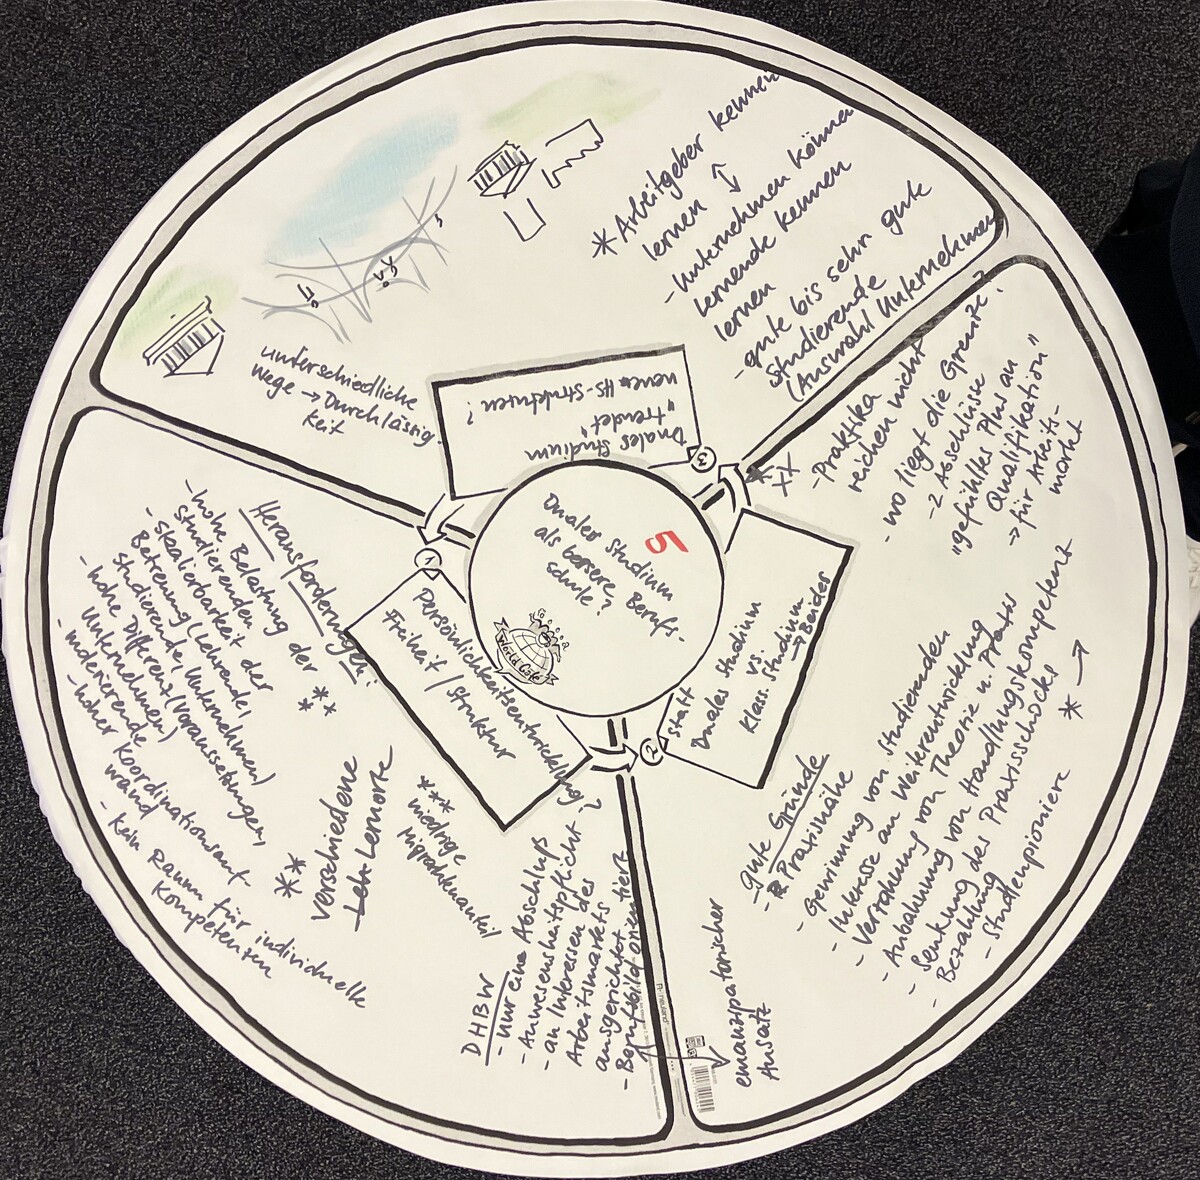 5
Duales Studium
als bessere Berufs-
schule?
World Café
1
Persönlichkeitsentwicklung?
Freiheit / Struktur
Herausforderungen:
- hohe Belastung der
Studierenden
**
- Skalierbarkeit der
Betreuung (Lehrende,
Studierende, Unternehmen)
- hohe Differenz (Voraussetzungen,
Unternehmen)
- moderierende
- hoher Koordinationsauf-
wand
- kein Raum für individuelle
Kompetenzen
**
verschiedene
Lernorte
***
niedrige
Migrantenanteil
DHBW
- nur eine Abschluß
- Anwesenheitspflicht
- an Interessen des
Arbeitsmarkts
ausgerichtet
- Berufsbild orientiert
2
statt
Duales Studium
vs.
Klass. Studium
→ Beider
- gute Gründe
- Praxisnähe
- Gewinnung von Studierenden
- Interesse an Weiterentwicklung
- Verzahnung von Theorie u. Praxis
- Anbahnung von Handlungskompetent
- Senkung des Praxisschocks
- Bezahlung
- Studienpionier
* →
emanzipatorischer
Ansatz
- Praktika
reichen nicht
- wo liegt die Grenze?
- 2 Abschlüsse
"gefühltes Plus an
Qualifikation"
→ für Arbeits-
markt
3
Duales Studium
"trendet"
neue HS-Strukturen?
unterschiedliche
Wege → Durchlässig-
keit
* Arbeitgeber kennen
lernen ↔
- Unternehmen können
lernende kennen
lernen
- gute bis sehr gute
Studierende
(Auswahl Unternehmen)
neuland